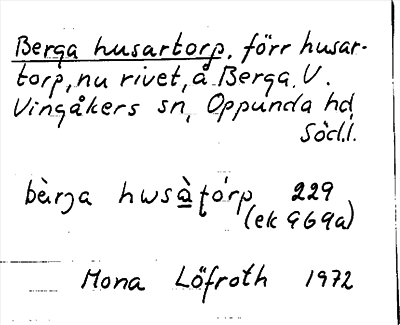 Berga husartorp, förr husar-
torp, nu rivet, å Berga, V.
Vingåkers sn, Oppunda hd,
Södl.
bèrga 229
(ek 969a)
Mona Löfroth 1972